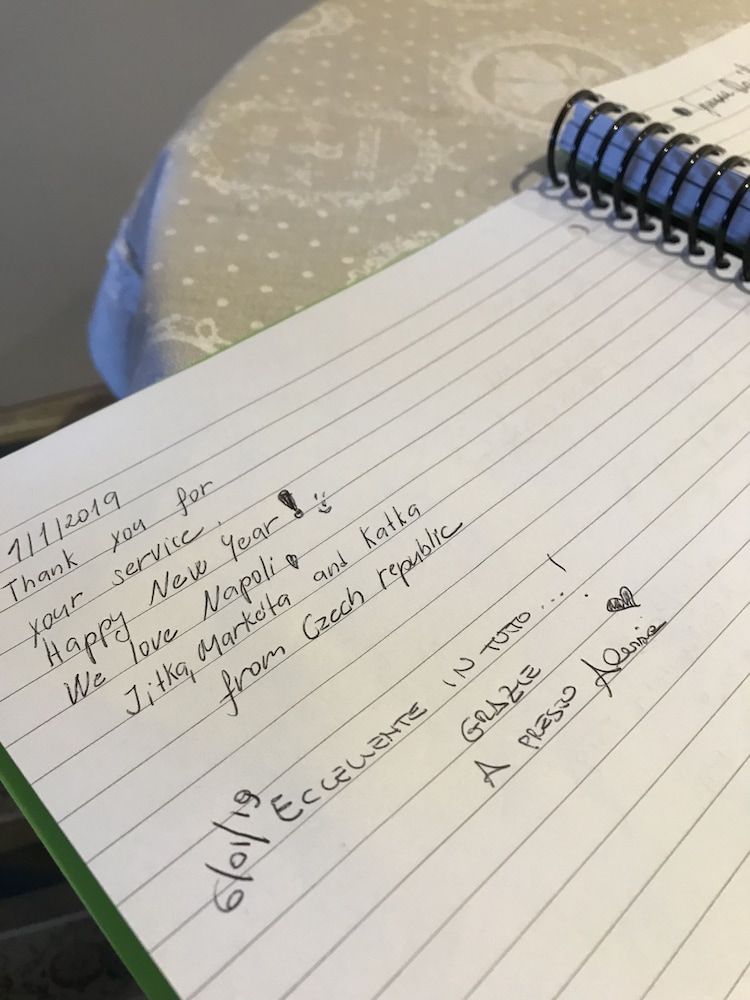 1/1/2019
Thank you for
your service.
Happy New Year!
We love Napoli
Jitka, Markéta and Katka
from Czech republic
6/01/19
ECCELLENTE IN TUTTO...!
GRAZIE
A PRESTO Alessia